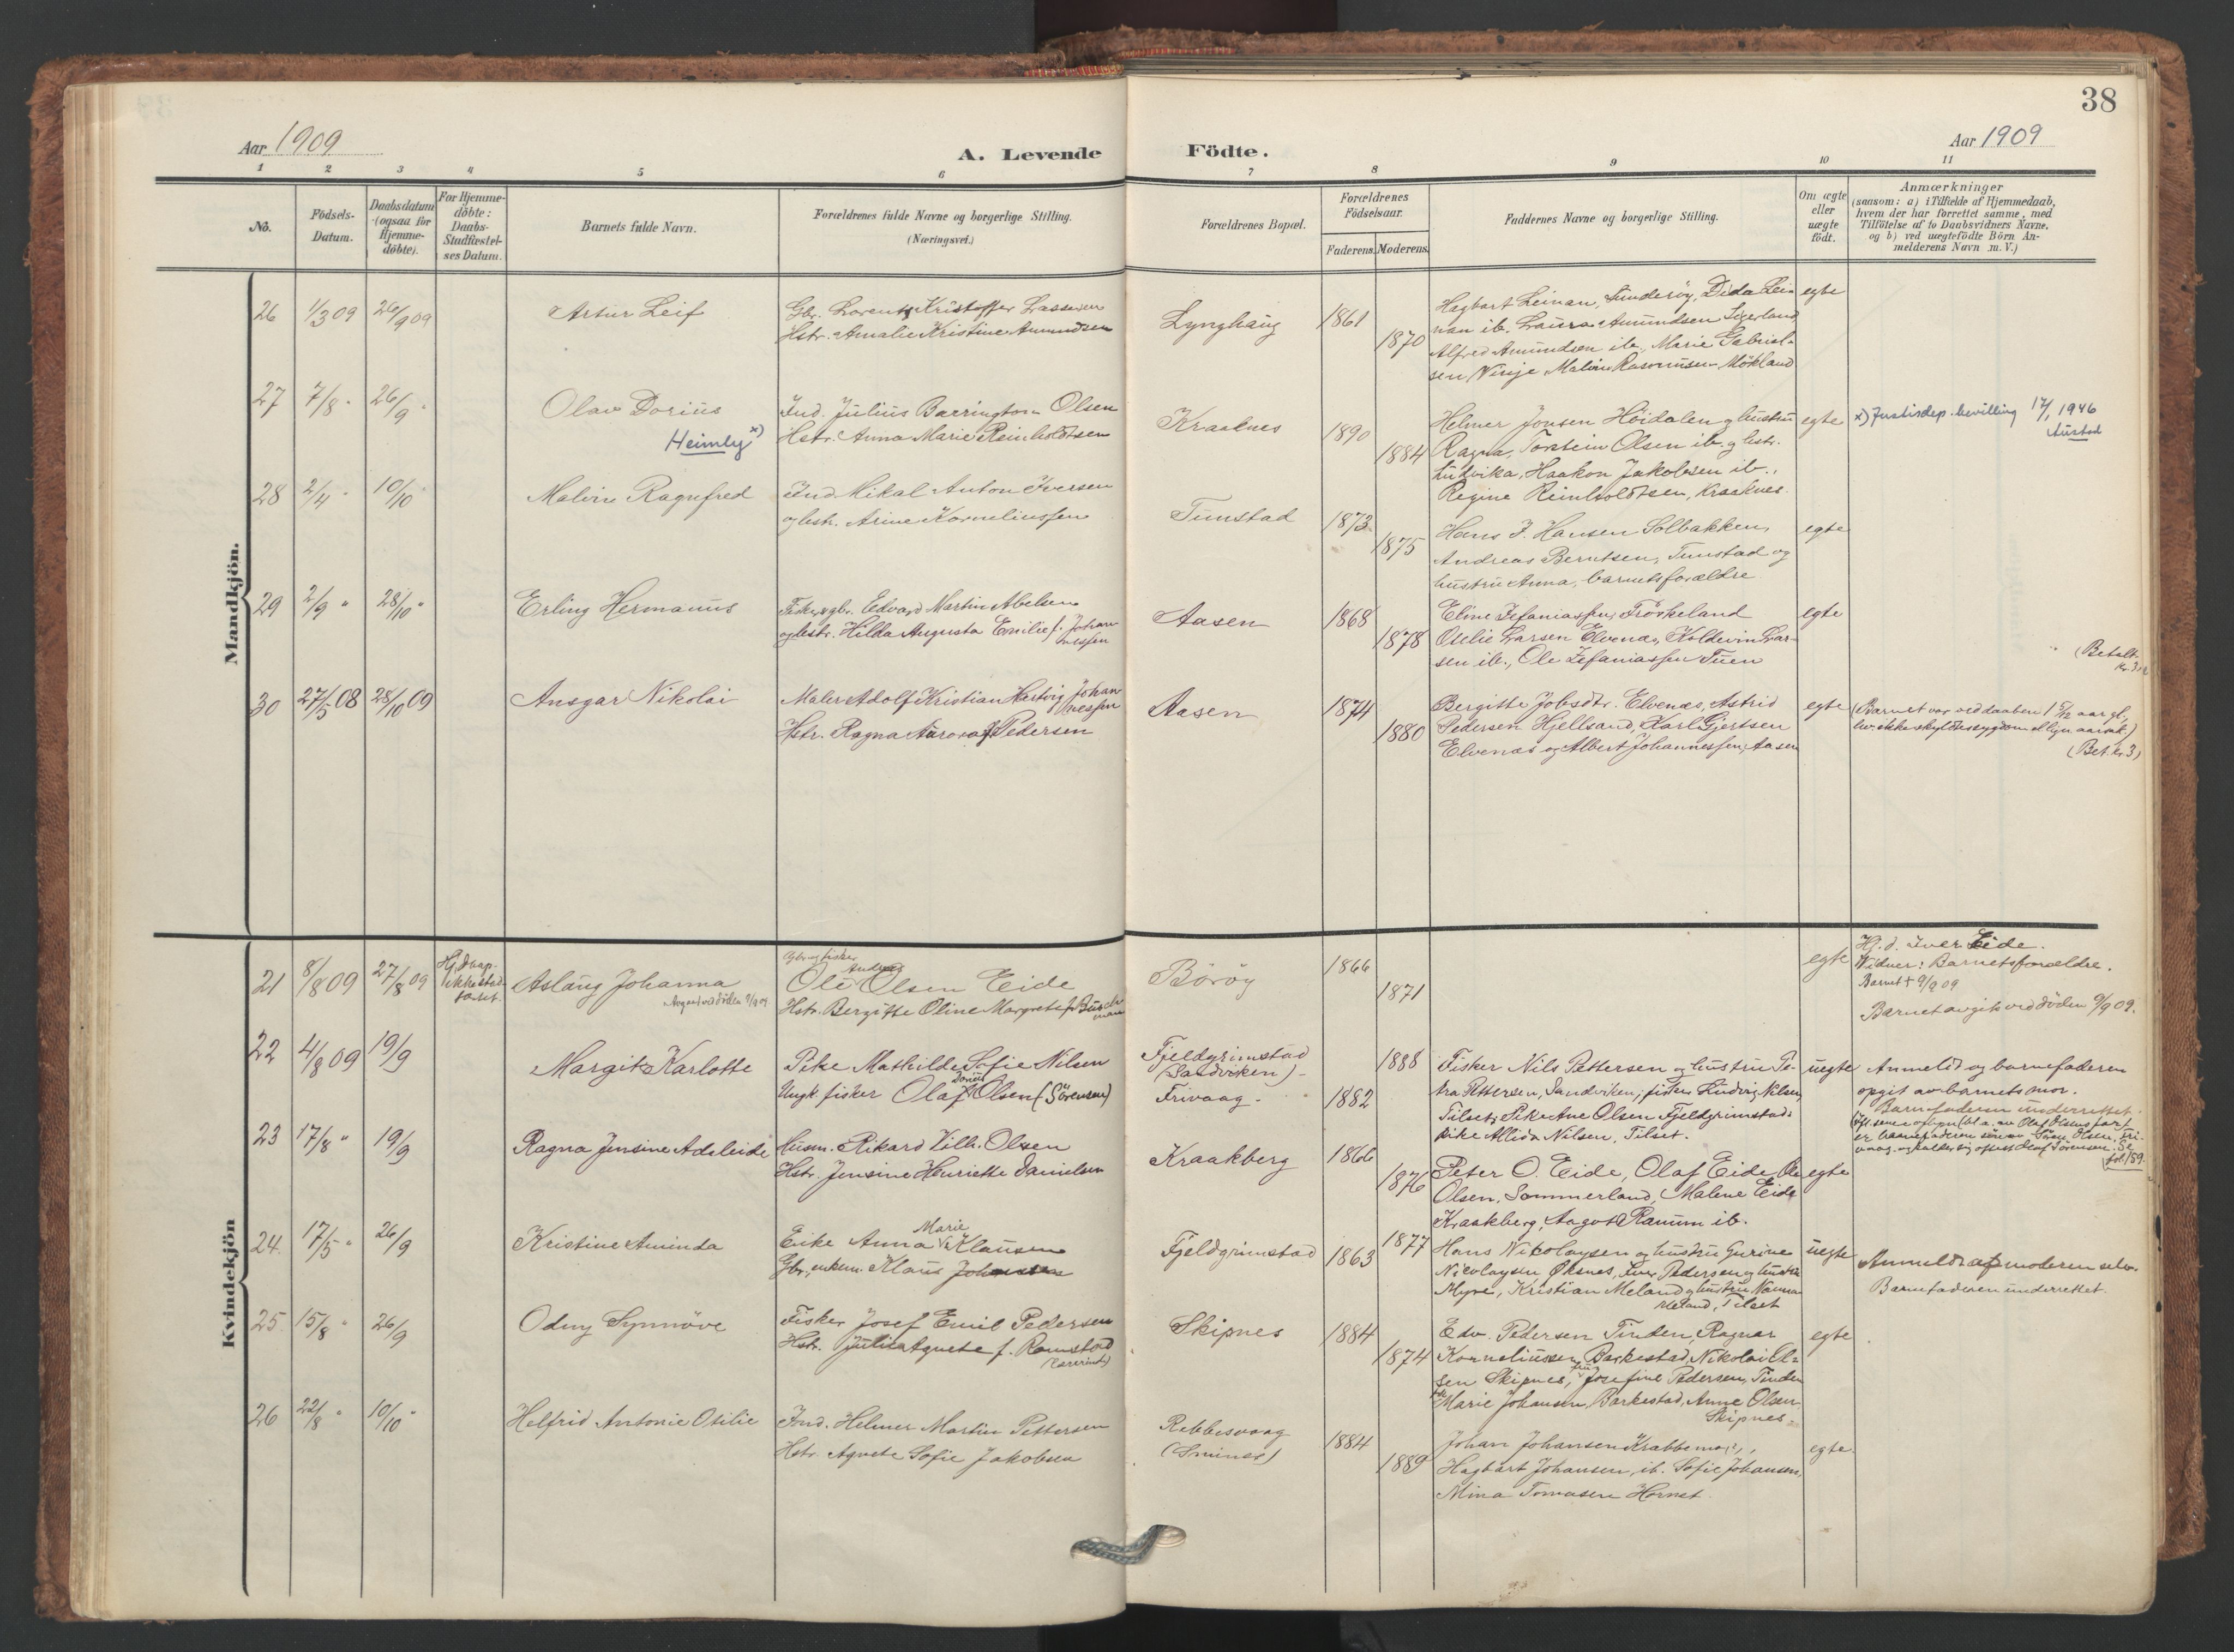 38
Aar 1909
A. Levende Födte.
Aar 1909
1 2 3 4 5 6 7 8 9 10 11
No.
Födsels-
Datum.
Daabsdatum
(ogsaa for
Hjemme-
döbte).
For Hjemme-
döbte:
Daabs-
Stadfæstel-
ses Datum.
Barnets fulde Navn.
Forældrenes fulde Navne og borgerlige Stilling.
(Næringsvei.)
Forældrenes Bopæl.
Forældrenes
Födselsaar.
Faderens. Moderens.
Faddernes Navne og borgerlige Stilling.
Om ægte
eller
uægte
födt.
Anmærkninger
(saasom: a) i Tilfælde af Hjemmedaab,
hvem der har forrettet samme, med
Tilföielse af to Daabsvidners Navne,
og b) ved uægtefödte Börn An-
melderens Navn m. V.)
Mandkjön.
26 1/3 09 26/9 09 Artur Leif
Gbr. Lorents Kristoffer Lassesen
Hstr. Amalie Kristine Amundsen
Lynghaug 1861 1870
Hagbart Leinan, Dida Lei-
nan ib. Laura Amundsen
Alfred Amundsen ib., Marie Gabriel-
sen, Vinje, Malvin Rasmussen Mökland
egte
27 7/8 26/9 Olav Dorius
Heimly x)
Ind. Julius Barrington Olsen
Hstr. Anna Marie Reinholdtsen
Kraaknes 1890 1884
Helmer Jonsen Höidalen og hustru
Ragna, Torstein Olsen ib. og hstr.
Ludvika, Haakon Jakobsen ib.,
Regine Reinholdtsen, Kraaknes.
egte
x) Justisdep. bevilling 17/1 1946
Austad
28 2/4 10/10 Malvin Ragnfred
Ind. Mikal Anton Iversen
og hstr. Arine Korneliussen
Tunstad 1873 1875
Hans J. Hansen Solbakken,
Andreas Berntsen, Tunstad og
hustru Anna, barnets forældre.
egte
29 2/9 " 28/10 " Erling Hermanus
Fisker, gbr. Edvard Martin Abelsen
og hstr. Hilda Augusta Emilie f. Johan-
nessen
Aasen 1868 1878
Eline Zefaniassen, Fröskeland
Otelie Larsen Elvenæs, Koldevin Lar-
sen ib., Ole Zefaniassen Tuen
egte
(Betalt
kr. 3
30 27/5 08 28/10 09 Ansgar Nikolai
Maler Adolf Kristian Hartvig Johan-
nessen
Hstr. Ragna Aurora f. Pedersen
Aasen 1874 1880
Bergitte Jobsdtr. Elvenæs, Astrid
Pedersen Hjellsand, Karl Gjertsen
Elvenæs og Albert Johannessen, Aasen
egte
(Barnet var ved daaben 1 5/12 aar gl.,
(Bet. kr. 3)
Kvindekjön
21 8/8 09 27/8 09
Hj. daap
ikke stad-
fæstet.
Aslaug Johanna
Avgaat ved döden 9/9 09
Gbr. og fisker
Ole Andreas Olsen Eide
Hstr. Bergitte Oline Margrete f. Busch-
mann
Börøy 1866 1871
egte
Hj. d. Iver Eide.
Vidner: Barnets forældre.
Barnet † 9/9 09
Barnet avgik ved döden 9/9 09.
22 4/8 09 19/9 Margit Karlotte
Pike Mathilde Sofie Nilsen
Ungk. fisker Olaf Olsen (Sörensen)
Fjeldgrimstad
(Sandviken) -
Frivaag. 1888 1882
Fisker Nils Pettersen og hustru Pe-
tra Pettersen, Sandviken; fisker Ludvig Nilsen,
Tilset; Pike Ane Olsen Fjeldgrimstad;
pike Nilsen, Tilset.
uegte
Anmeldt og barnefaderen
opgit av barnets mor.
Barnefaderen underrettet.
fol. 159.
23 17/8 " 19/9 Ragna Jensine Adeleide
Husm. Rikard Vilh. Olsen
Hstr. Jensine Henriette Danielsen
Kraakberg 1866 1876
Peter O. Eide, Olaf Eide, Ole
Olsen, Sommerland, Malene Eide
Kraakberg, Aagot Ranum ib.
egte
24. 17/5 " 26/9 Kristine Aminda
Enke Anna Marie Klausen
Gbr., enkem. Klaus Johansen
Fjeldgrimstad 1863 1877
Hans Nikolaysen og hustru Gurine
Nikolaysen Øksnes, Iver Pedersen og hustru
Myre, Kristian Meland og hustru Nanna
Meland, Tilset
uegte
Anmeldt af moderen selv.
Barnefaderen underrettet.
25. 15/8 " 26/9 Odny Synnöve
Fisker Josef Emil Pedersen
Hstr. Julia Agnete f. Ramstad
Skipnes 1884 1874
Edv. Pedersen Tinden, Ragnar
Korneliussen, Barkestad, Nikolai Ol-
sen Skipnes, fru Josefine Pedersen, Tinden
Marie Johansen, Barkestad, Anne Olsen
Skipnes
egte
26 22/8 " 10/10 " Helfrid Antonie Otilie
Ind. Helmer Martin Pettersen
Hstr. Agnete Sofie Jakobsen
Rebbesvaag
(Smines) 1884 1889
Johan Johansen
Hagbart Johansen, ib. Sofie Johansen,
Mina Tomasen Hornet.
egte.